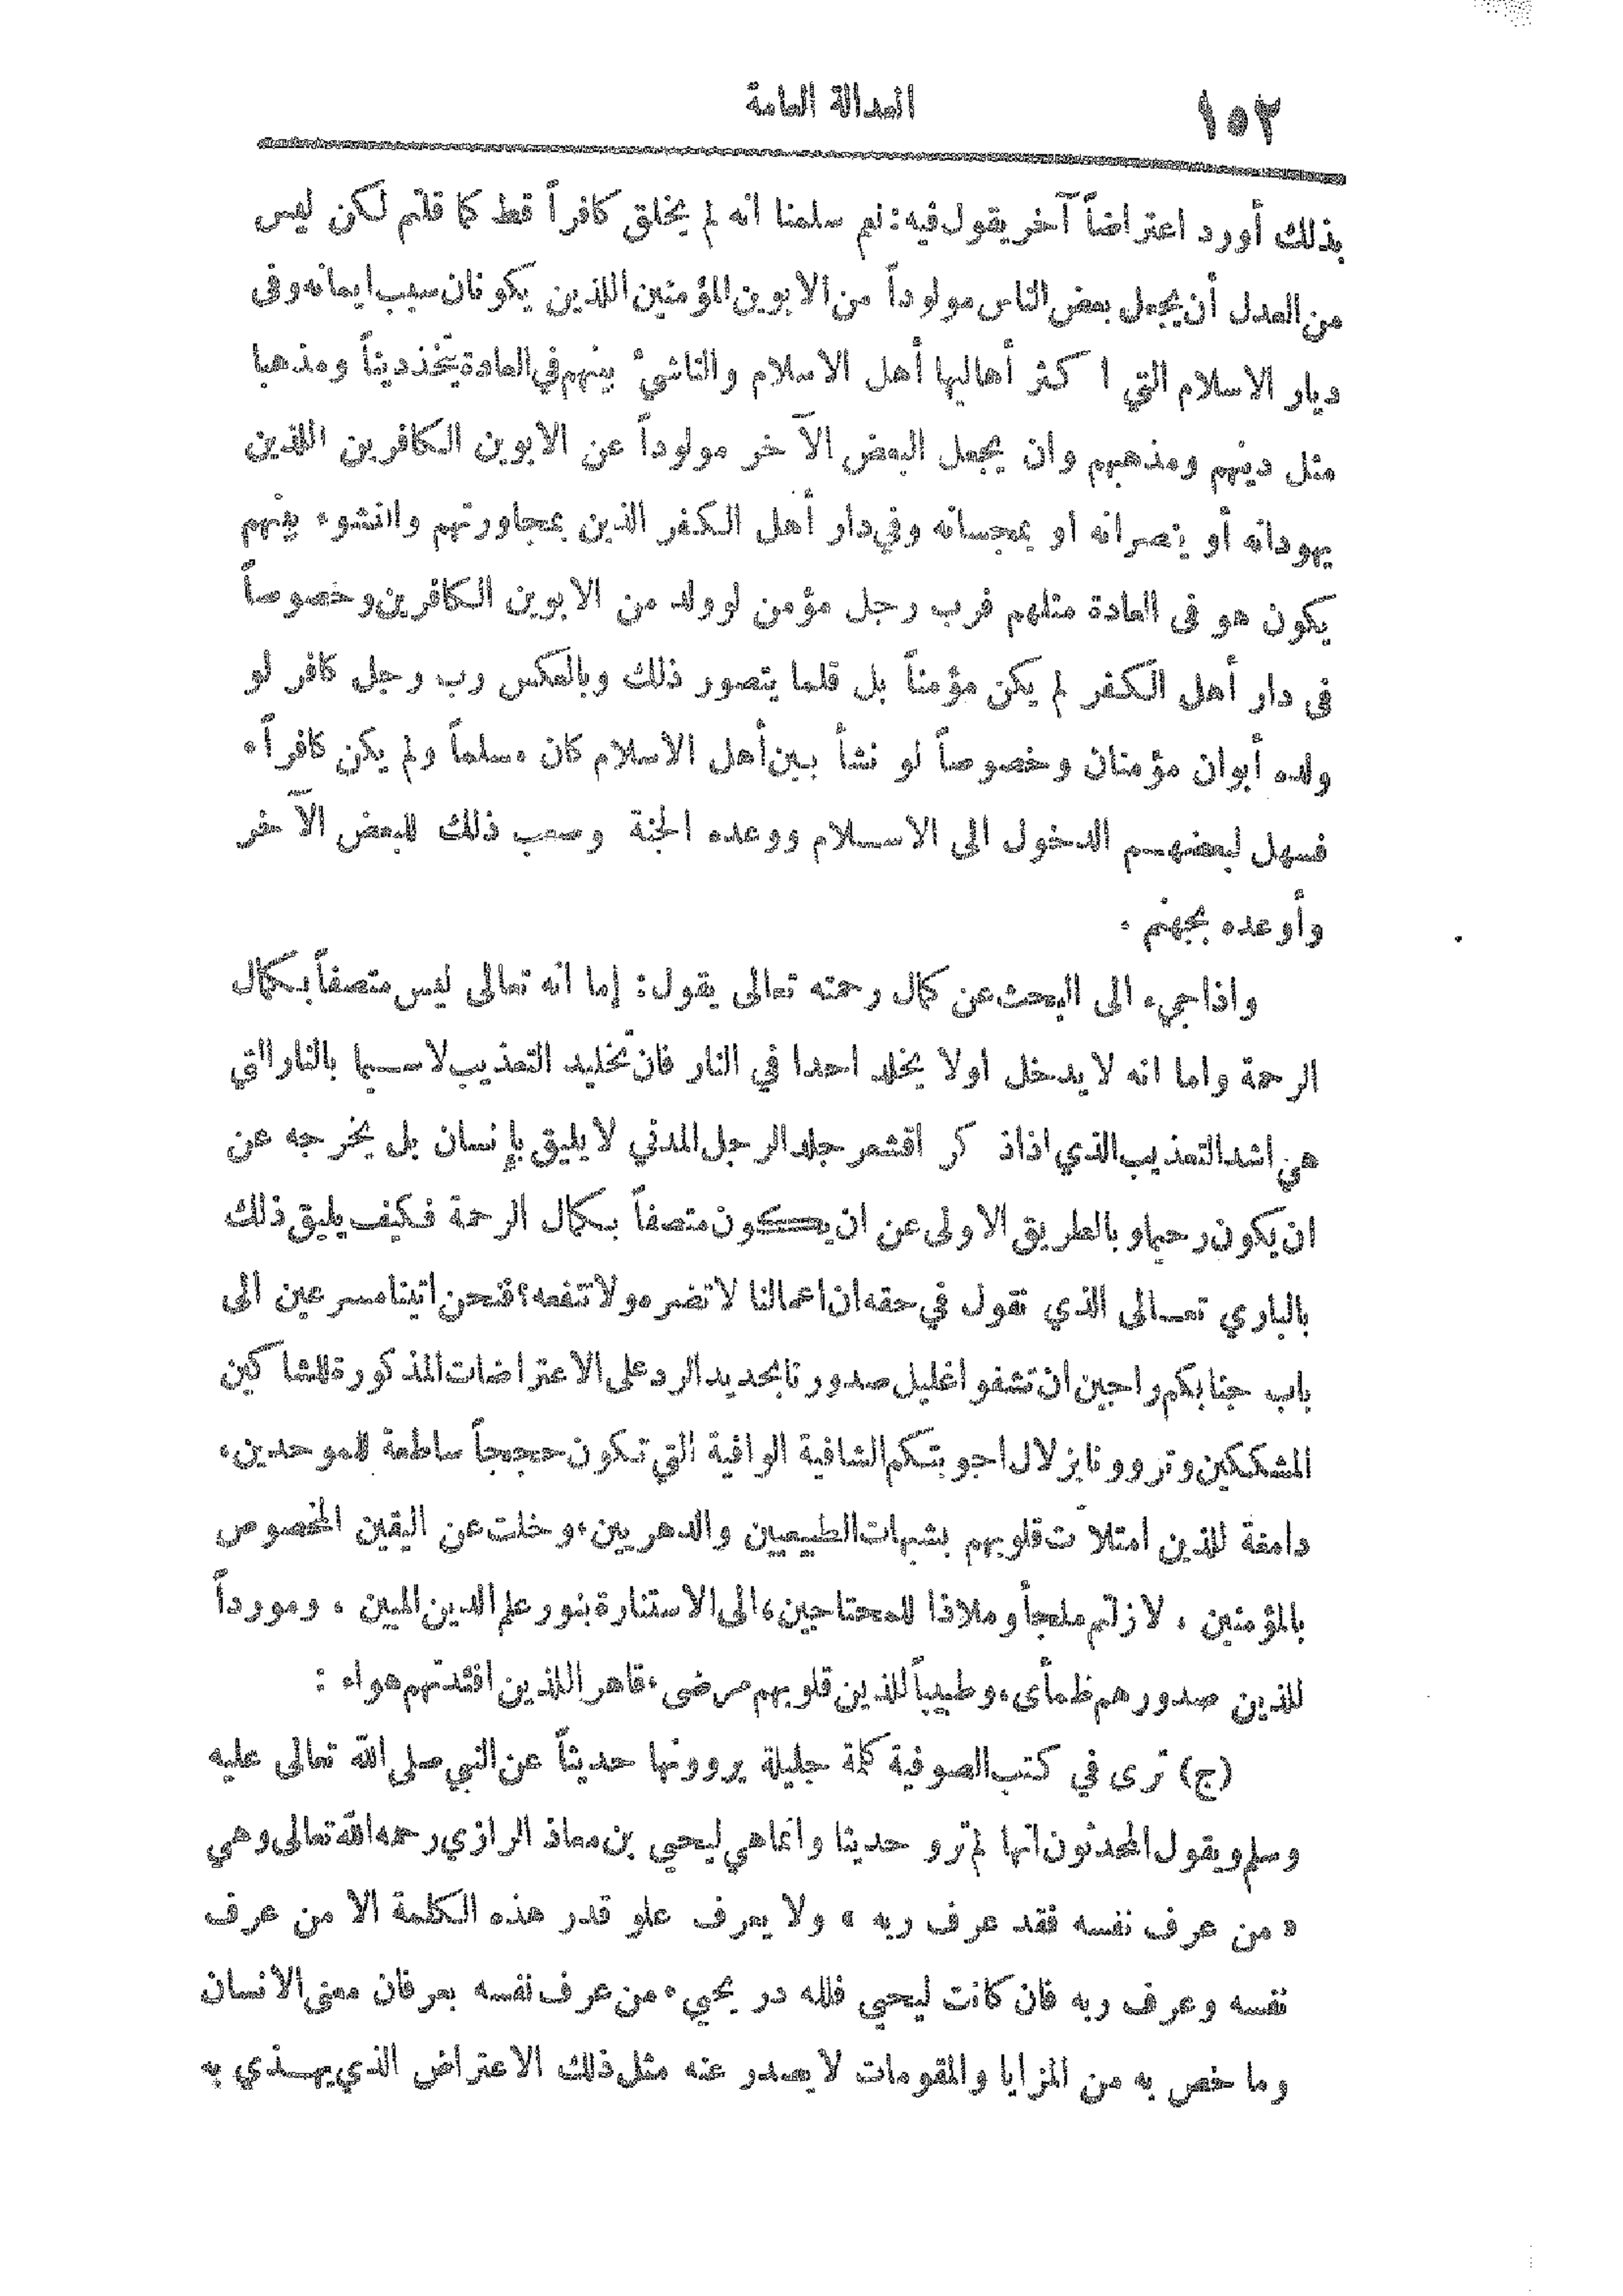 ١٥٢
العدالة العامة
بذلك أورد اعتراضاً آخر يقول فيه: نعم سلمنا انه لم يخلق كافراً قط كما قلتم لكن ليس
من العدل أن يجعل بعض الناس مولوداً من الابوين المؤمنين اللذين يكونان سبب ايمانه وفى
ديار الاسلام التي اكثر أهاليها أهل الاسلام والناشئ بينهم في العادة يتخذ ديناً ومذهبا
مثل دينهم ومذهبهم وان يجعل البعض الآخر مولوداً عن الابوين الكافرين اللذين
يهودانه أو ينصرانه او يمجسانه وفي دار أهل الكفر الذين بمجاورتهم والنشوء بينهم
يكون هو فى العادة مثلهم فرب رجل مؤمن لو ولد من الابوين الكافرين وخصوصاً
فى دار أهل الكفر لم يكن مؤمناً بل قلما يتصور ذلك وبالعكس رب رجل كافر لو
ولده أبوان مؤمنان وخصوصاً لو نشأ بين أهل الاسلام كان مسلماً ولم يكن كافراً.
فسهل لبعضهم الدخول الى الاسلام ووعده الجنة وصعب ذلك للبعض الآخر
وأوعده بجهنم .
واذا جيء الى البحث عن كمال رحمته تعالى يقول: إما انه تعالى ليس متصفاً بكمال
الرحمة واما انه لا يدخل اولا يخلد احدا في النار فان تخليد التعذيب لاسيما بالنار التي
هي اشد التعذيب الذي اذا ذكر اقشعر جلد الرجل المدني لا يليق بإنسان بل يخرجه عن
ان يكون رحيما وبالطريق الاولى عن ان يكون متصفاً بكمال الرحمة فكيف يليق ذلك
بالباري تعالى الذي نقول في حقه ان اعمالنا لا تضره ولا تنفعه؟ فنحن اتينا مسرعين الى
باب جنابكم راجين ان تشفوا غليل صدورنا بجديد الرد على الاعتراضات المذكورة للشاكين
المشككين وتروونا بزلال اجوبتكم الشافية الوافية التي تكون حججاً ساطعة للموحدين،
دامغة للذين امتلآت قلوبهم بشبهات الطبيعيين والدهريين، وخلت عن اليقين المخصوص
بالمؤمنين ، لا زلتم ملجأ وملاذا للمحتاجين، الى الاستنارة بنور علم الدين المبين ، وموردا
للذين صدورهم ظمأى، وطبيباً للذين قلوبهم مرضى، قاهر اللذين افئدتهم هواء :
(ج) ترى في كتب الصوفية كلمة جليلة يروونها حديثاً عن النبي صلى الله تعالى عليه
وسلم ويقول المحدثون انها لم ترو حديثا وانما هي ليحيى بن معاذ الرازي رحمه الله تعالى وهي
« من عرف نفسه فقد عرف ربه » ولا يعرف علو قدر هذه الكلمة الا من عرف
نفسه وعرف ربه فان كانت ليحيى فلله در يحيي. من عرف نفسه بعرفان معنى الانسان
وما خص به من المزايا والمقومات لا يصدر عنه مثل ذلك الاعتراض الذي يهذي به